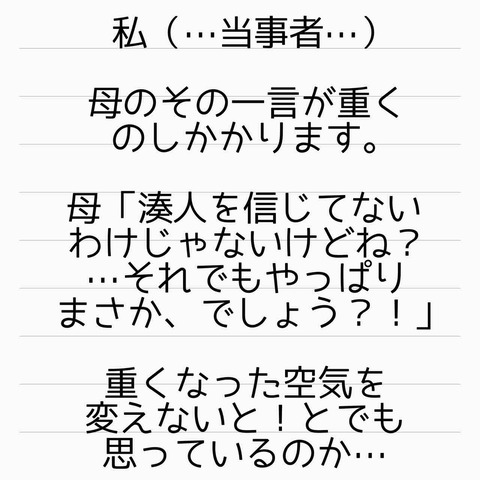 私（…当事者…）
母のその一言が重く
のしかかります。
母「湊人を信じてない
わけじゃないけどね？
…それでもやっぱり
まさか、でしょう？！」
重くなった空気を
変えないと！とでも
思っているのか…